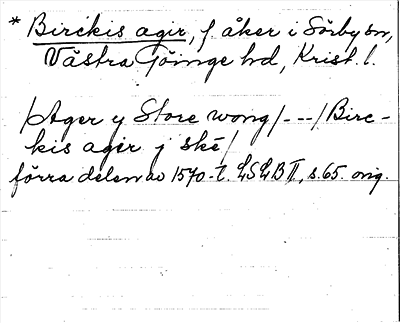 * Birckis agir, f. åker i Sörby sn,
Västra Göinge hd, Krist. l.
/Ager y Store wong/---/Birc-
kis agir y ské/
förra delen av 1570-t. LSLB II, s. 65. orig.